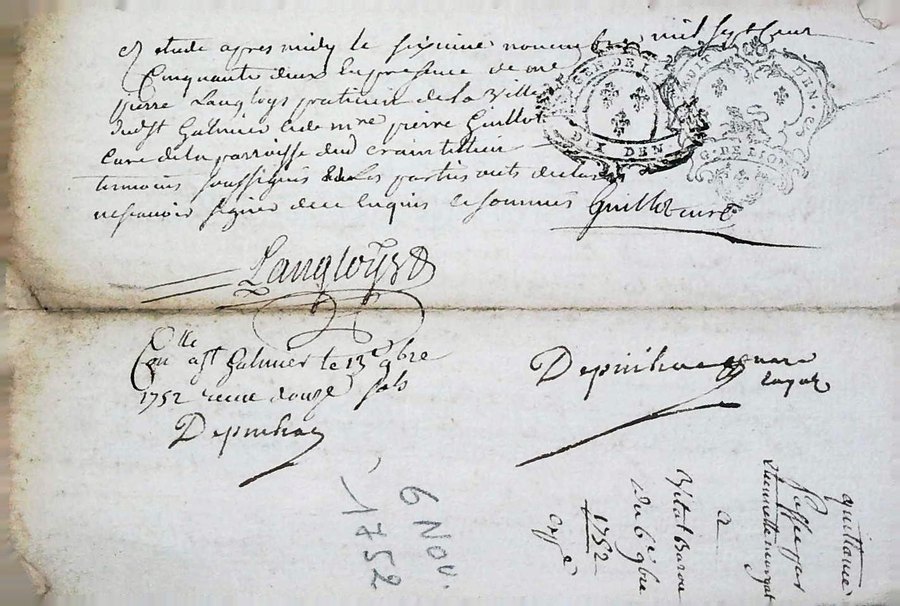 étude apres midy le sixieme novembre mil sept cent
Cinquante deux En presence de me
pierre Langloys praticien de la Ville
dudt St Galmier & de mre pierre Guillot
Curé de la parroisse de Craintillieu
temoins soussignés & les parties ont declaré
ne scavoir signer de ce enquis & sommés Guillot curé
GEN DE L
DIX DEN
HUIT DEN
G. DE LION
Langloys
Collé
Con a St Galmier le 13e 9bre
1752 recu douze sols
Depinhac
Depinhac
notaire
royal
6 Nov.
1752
quittance
a
Vital Barou
du 6e 9bre
1752
Expé